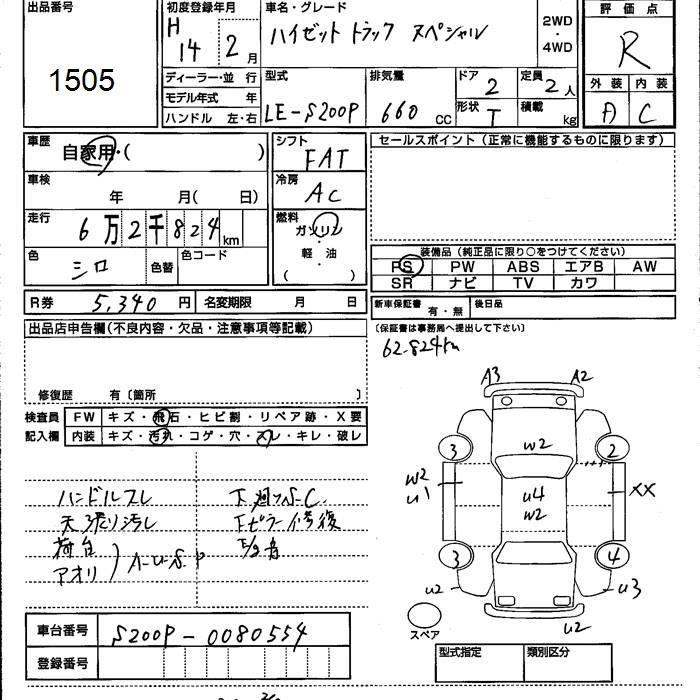 出品番号
1505
初度登録年月
H 14 2 月
ディーラー・並 行
モデル年式 年
ハンドル 左・右
車名・グレード
ハイゼット トラック スペシャル
2WD・4WD
型式
LE-S200P
排気量
660 CC
ドア 2
形状 T
定員 2 人
積載 kg
評価点
R
外装 内装
A C
車歴
自家用・( )
車検
年 月( 日)
走行
6万2千824km
色
シロ
色替
色コード
シフト
FAT
冷房
AC
燃料
ガソリン
軽・油
( )
セールスポイント(正常に機能するものに限ります)
装備品(純正品に限り○をつけてください)
PS PW ABS エアB AW
SR ナビ TV カワ
R券 5,340 円 名変期限 月 日
新車保証書 有・無 後日品
(保証書は事務局へ提出して下さい)
62.824km
出品店申告欄(不良内容・欠品・注意事項等記載)
修復歴 有〔箇所 〕
検査員記入欄
FW キズ・飛石・ヒビ割・リペア跡・X要
内装 キズ・汚れ・コゲ・穴・スレ・キレ・破レ
ハンドルスレ
天張り汚レ
荷台
アオリ
A-U-S.P
下廻りS-C
修復
A3 A2
3 W2 2
W2 U1
U4 W2
XX
3 4
U2 U3
U2
スペア
車台番号 S200P-0080554
登録番号
型式指定 類別区分